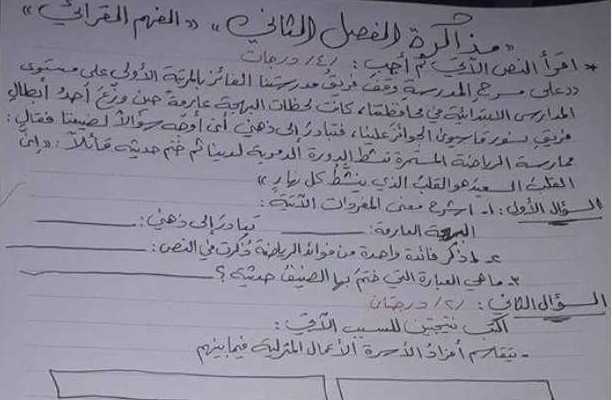 « مذاكرة الفصل الثاني » « الفهم القرائي »
* اقرأ النص الآتي ثم أجب : /٤/ درجات
«على مسرح المدرسة وقف فريق مدرستنا الفائز بالمرتبة الأولى على مستوى
المدارس الابتدائية في محافظتنا، كانت لحظات البهجة عارمة حين وزّع أحد أبطال
فريق سوريا الجوائز علينا، فتبادر إلى ذهني أن أوجّه سؤالاً لضيفنا فقال:
ممارسة الرياضة المستمرة تنشط الدورة الدموية لدينا ثم ختم حديثه قائلاً: «إنّ
القلب السعيد هو القلب الذي ينشط كل نهار»
السؤال الأول: ١- اشرح معنى المفردات الآتية:
البهجة العارمة: تبادر إلى ذهني:
٢- اذكر فائدة واحدة من فوائد الرياضة ذكرت في النص:
٣- ما هي العبارة التي ختم بها الضيف حديثه؟
السؤال الثاني: /٢/ درجتان
اكتب نتيجتين للسبب الآتي:
- يتقاسم أفراد الأسرة الأعمال المنزلية فيما بينهم